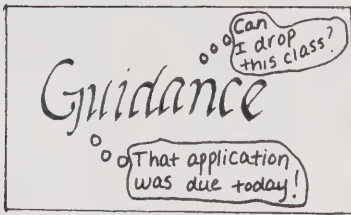 Can
I drop
this class?
Guidance
That application
was due today!